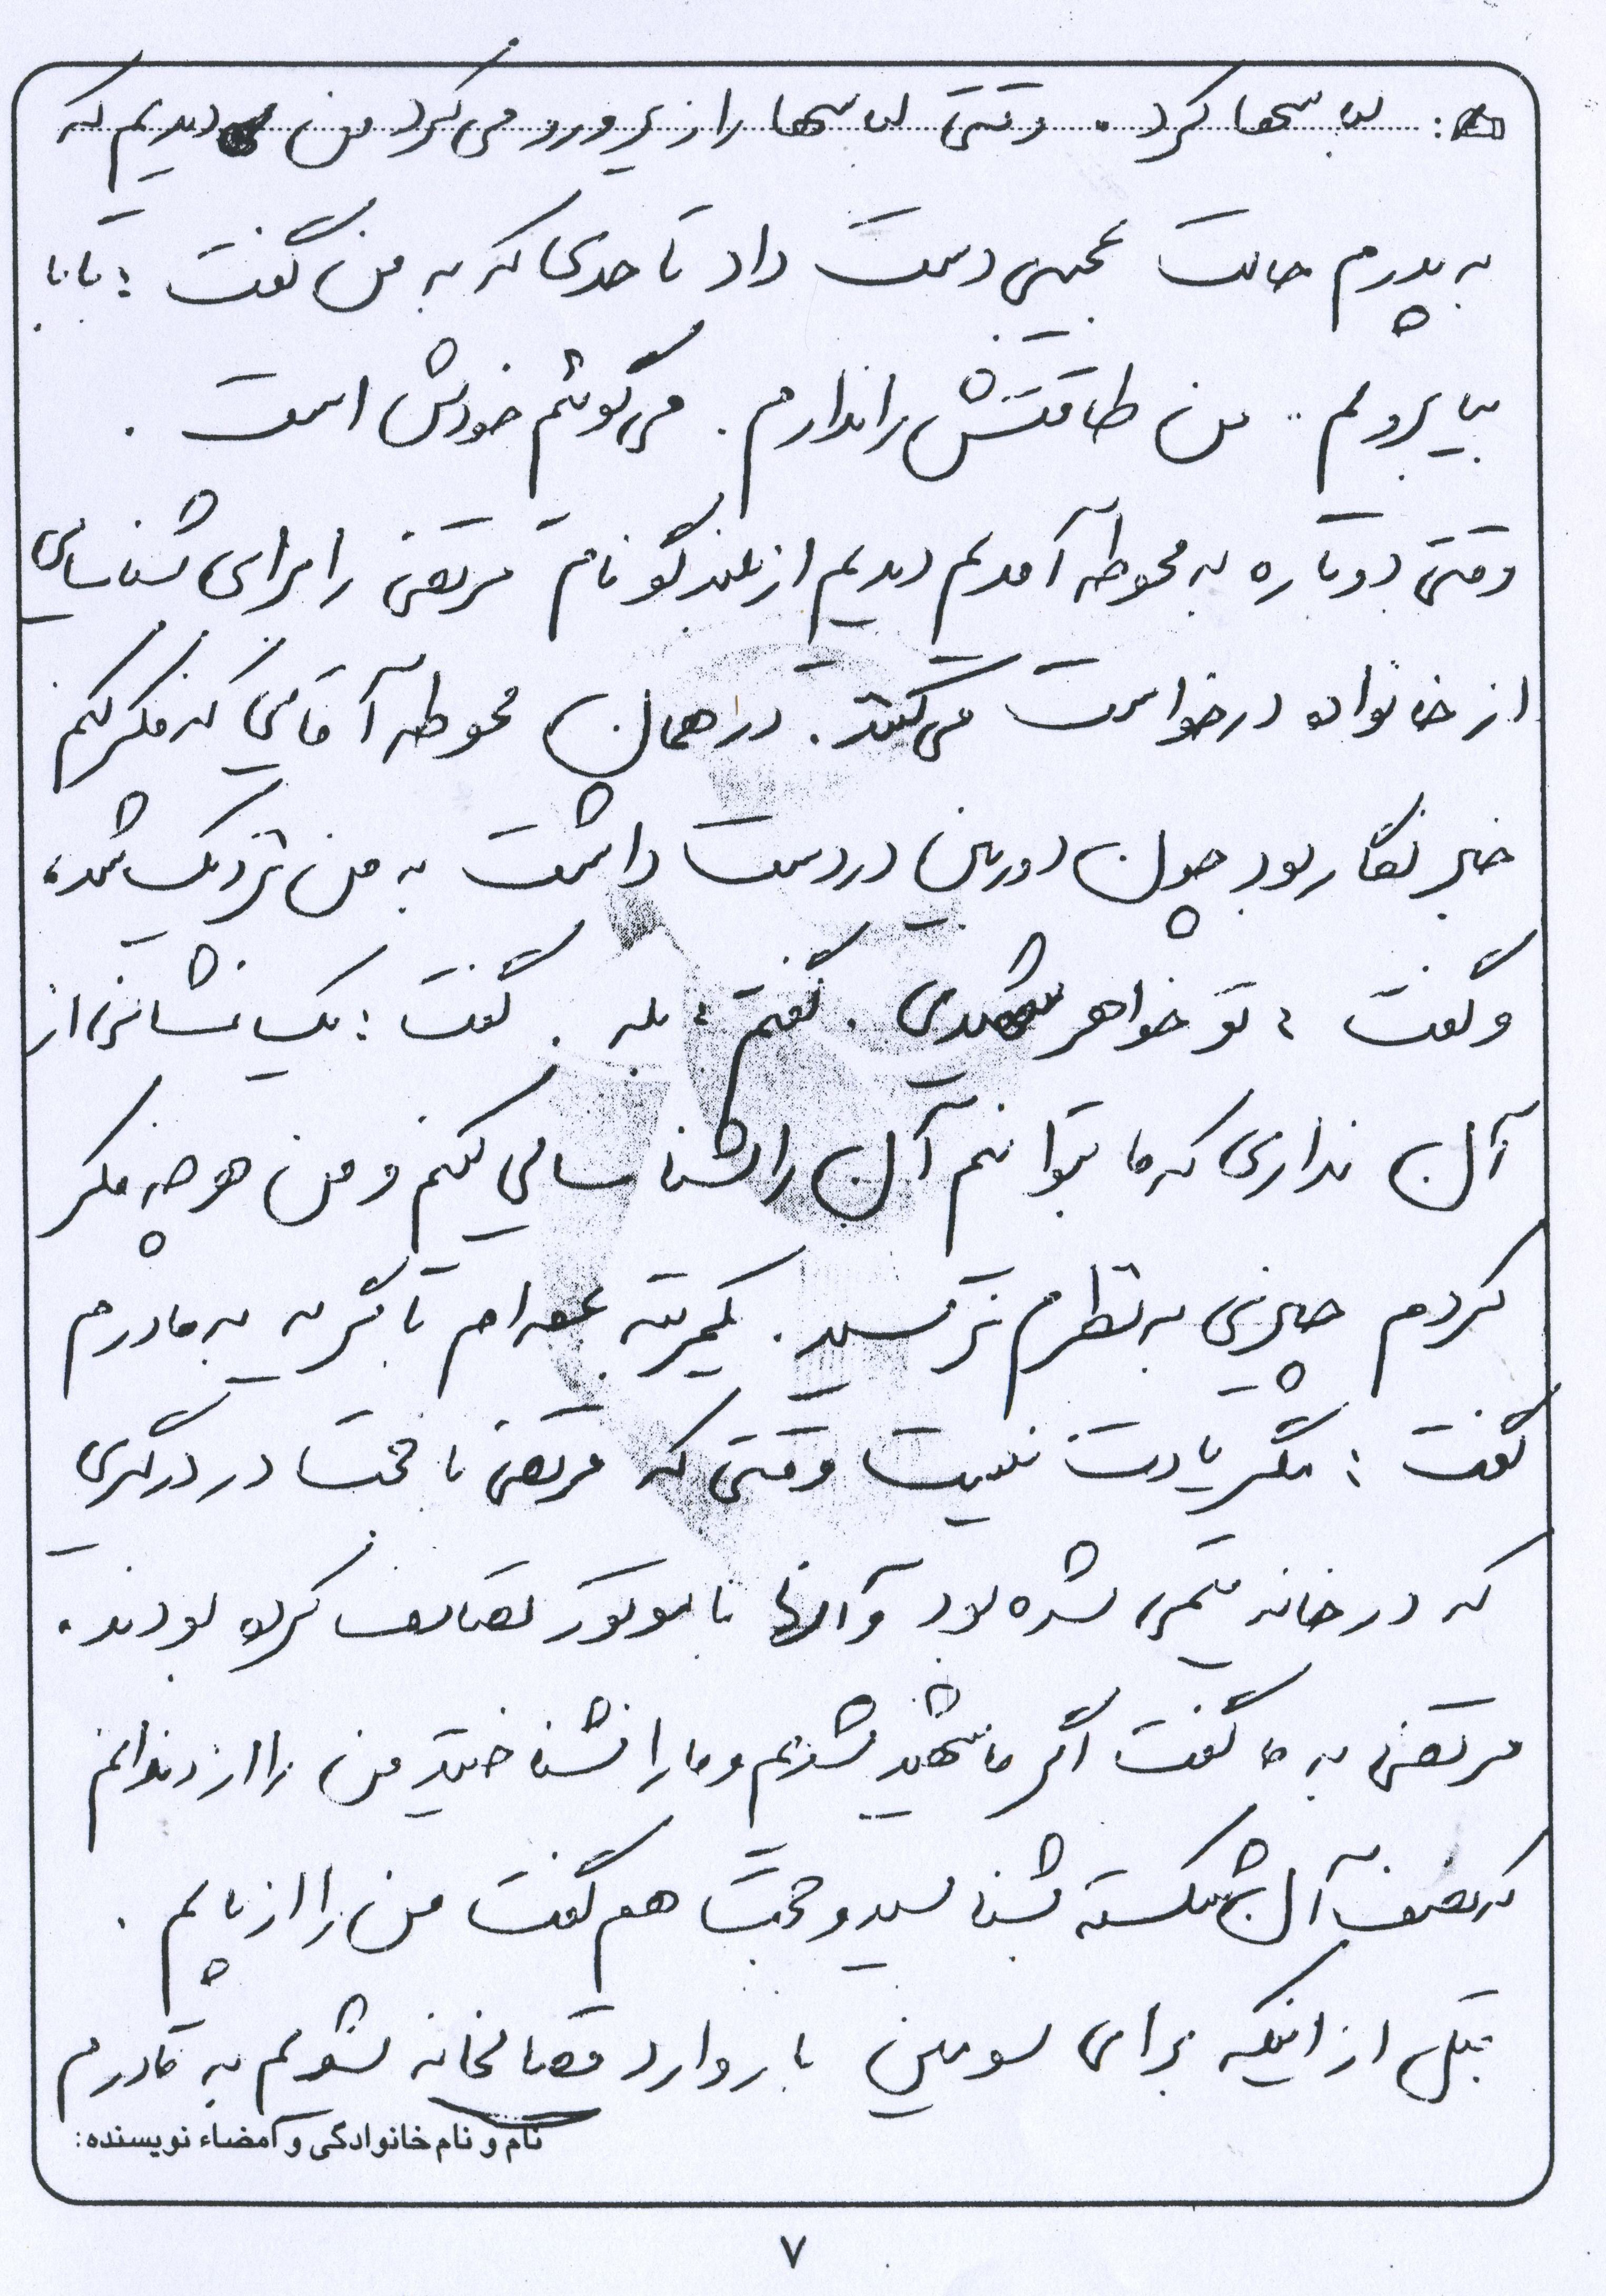 لباسها کرد. وقتی لباسها را زیر و رو می‌کرد من دیدیم که
به پدرم حالت عجیبی دست داد تا حدی که به من گفت: بابا
بیا برویم .. من طاقتش را ندارم. می‌گوئیم خودش است.
وقتی دوباره به محوطه آمدیم دیدیم از بلندگو نام مرتضی را برای شناسایی
از خانواده درخواست می‌کنند. در همان محوطه آقایی که فکر کنم
خبرنگار بود چون دوربین در دست داشت به من نزدیک شد،
و گفت: تو خواهر شهیدی. گفتم: بله. گفت: یک نشانی از
آن نداری که ما بتوانیم آن را شناسایی کنیم و من هر چه فکر
کردم چیزی به نظرم نرسید. یکمرتبه عمه‌ام با گریه به مادرم
گفت: مگر یادت نیست وقتی که مرتضی با حجت در درگیری
که در خانه تیمی شده بود و آنها با موتور تصادف کرده بودند.
مرتضی به ما گفت اگر ما شهید شدیم و ما را نشناختید من را از دندانم
که نصف آن شکسته بشناسید و حجت هم گفت من را از پایم.
قبل از اینکه برای سومین بار وارد غسالخانه بشویم به مادرم
نام و نام خانوادگی و امضاء نویسنده:
۷